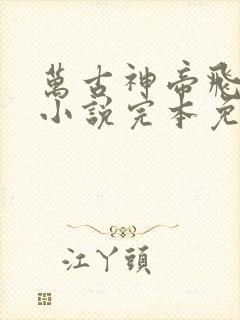 萬古神帝飛
小說完本免
江丫頭